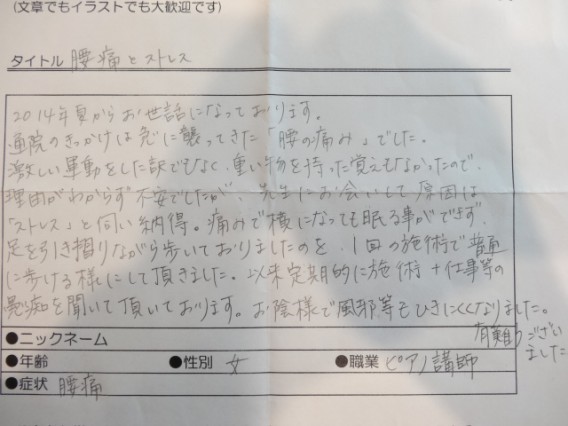 (文章でもイラストでも大歓迎です)
タイトル 腰痛とストレス
2014年夏からお世話になっております。
通院のきっかけは急に襲ってきた「腰の痛み」でした。
激しい運動をした訳でもなく、重い物を持った覚えもなかったので、
理由がわからず不安でしたが、先生にお会いして原因は
「ストレス」と伺い納得。痛みで横になっても眠る事ができず、
足を引き摺りながら歩いておりましたのを、1回の施術で普通
に歩ける様にして頂きました。以来定期的に施術+仕事等の
愚痴を聞いて頂いております。お陰様で風邪等もひきにくくなりました。
有難うござい
ました
●ニックネーム
●年齢 ●性別 女 ●職業 ピアノ講師
●症状 腰痛